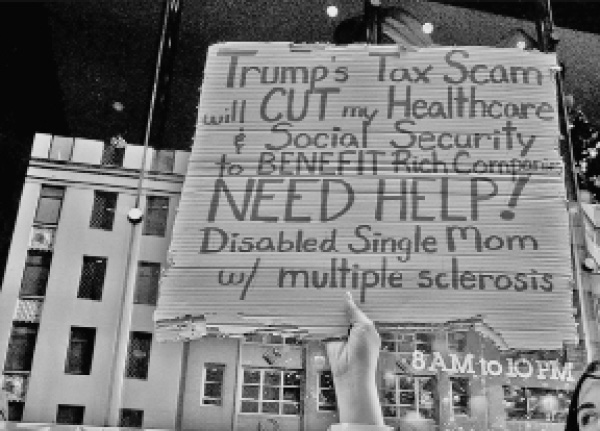 Trump's Tax Scam
will CUT my Healthcare
& Social Security
to BENEFIT Rich Companies
NEED HELP!
Disabled Single Mom
w/ multiple sclerosis
8AM to 10PM